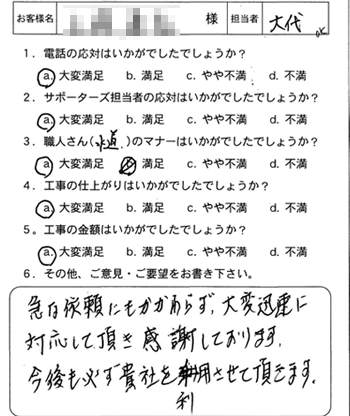 お客様名 様 担当者 大代 OK
1．電話の応対はいかがでしたでしょうか？
a. 大変満足 b. 満足 c. やや不満 d. 不満
2．サポーターズ担当者の応対はいかがでしたでしょうか？
a. 大変満足 b. 満足 c. やや不満 d. 不満
3．職人さん(水道)のマナーはいかがでしたでしょうか？
a. 大変満足 b. 満足 c. やや不満 d. 不満
4．工事の仕上がりはいかがでしたでしょうか？
a. 大変満足 b. 満足 c. やや不満 d. 不満
5．工事の金額はいかがでしたでしょうか？
a. 大変満足 b. 満足 c. やや不満 d. 不満
6．その他、ご意見・ご要望をお書き下さい。
急な依頼にもかかわらず、大変迅速に
対応して頂き感謝しております。
今後も必ず貴社を利用させて頂きます。